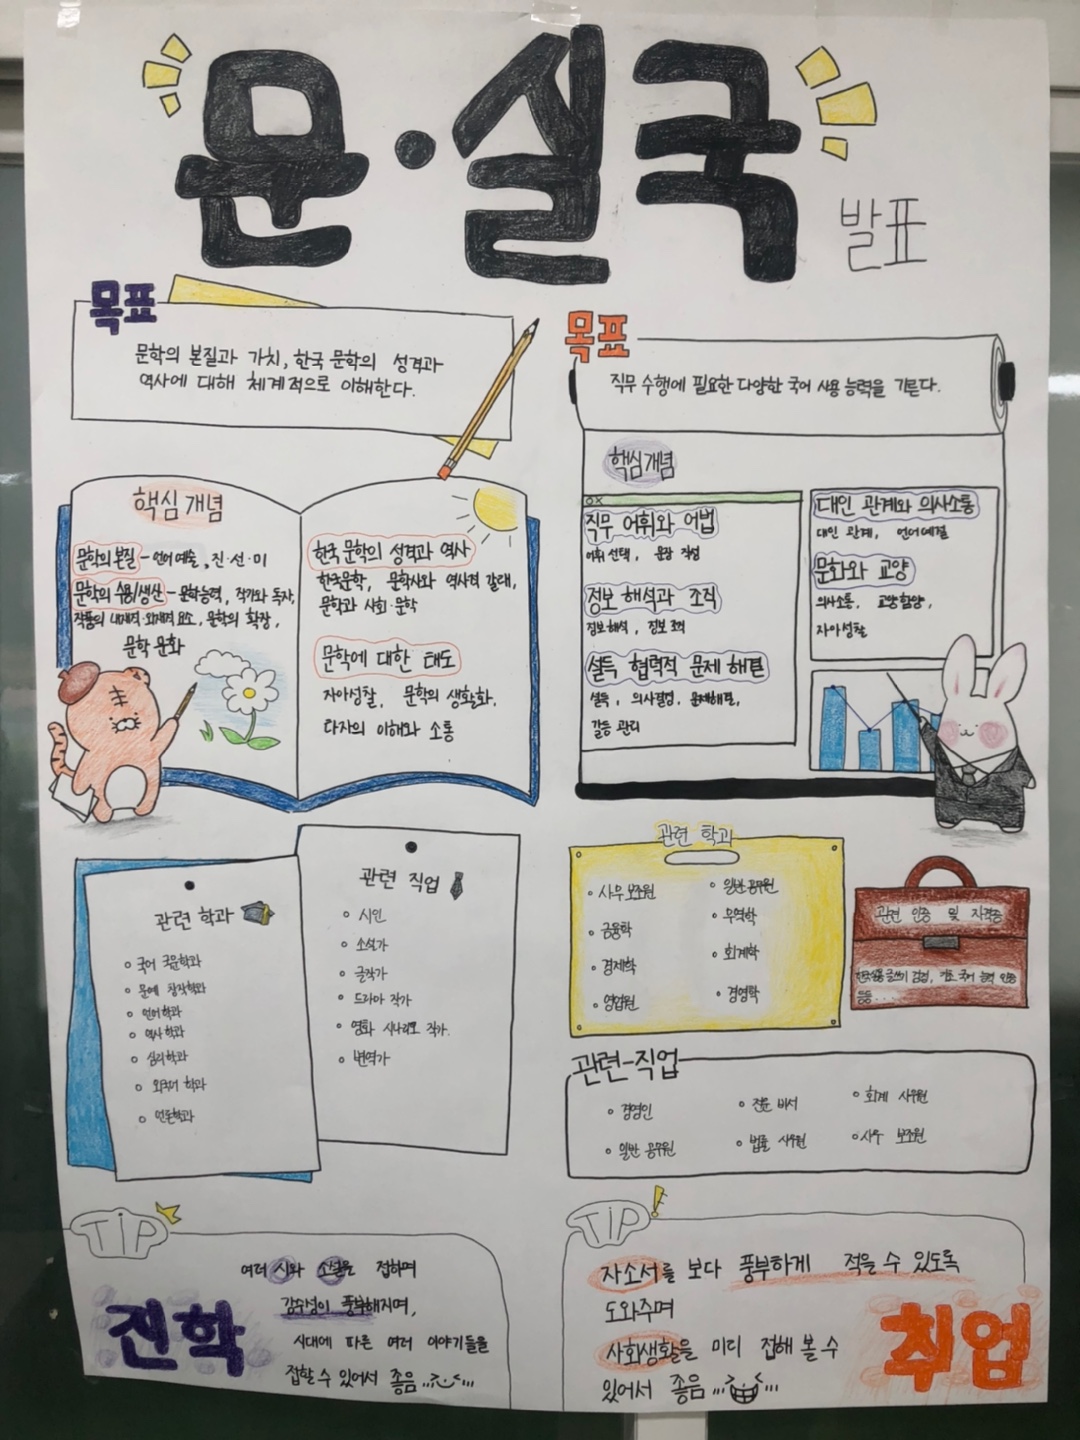 문·실국
발표
목표
문학의 본질과 가치, 한국 문학의 성격과
역사에 대해 체계적으로 이해한다.
핵심 개념
문학의 본질 - 언어 예술, 진·선·미
문학의 수용/생산 - 문학능력, 작가와 독자,
작품의 내재적·외재적 요소, 문학의 확장,
문학 문화
한국 문학의 성격과 역사
한국문학, 문학사와 역사적 갈래,
문학과 사회·문학
문학에 대한 태도
자아성찰, 문학의 생활화,
타자의 이해와 소통
관련 학과
국어 국문학과
문예 창작학과
언어학과
역사학과
심리학과
외국어 학과
언론학과
관련 직업
시인
소설가
글작가
드라마 작가
영화 시나리오 작가.
번역가
TIP
여러 시와 소설을 접하며
감수성이 풍부해지며,
시대에 따른 여러 이야기들을
접할 수 있어서 좋음...
진학
목표
직무 수행에 필요한 다양한 국어 사용 능력을 기른다.
핵심개념
OX
직무 어휘와 어법
어휘 선택, 문장 작성
정보 해석과 조직
정보 해석, 정보 조직
설득 협력적 문제 해결
설득, 의사결정, 문제해결,
갈등 관리
대인 관계와 의사소통
대인 관계, 언어예절
문화와 교양
의사소통, 교양함양,
자아성찰
관련 학과
사무 보조원
금융학
경제학
영업원
일반 공무원
무역학
회계학
경영학
관련 인증 및 자격증
한국실용글쓰기 검정, 기초 국어 능력 인증
등등...
관련-직업
경영인
전문 비서
회계 사무원
일반 공무원
법률 사무원
사무 보조원
TIP
자소서를 보다 풍부하게 적을 수 있도록
도와주며
사회생활을 미리 접해 볼 수
있어서 좋음...
취업